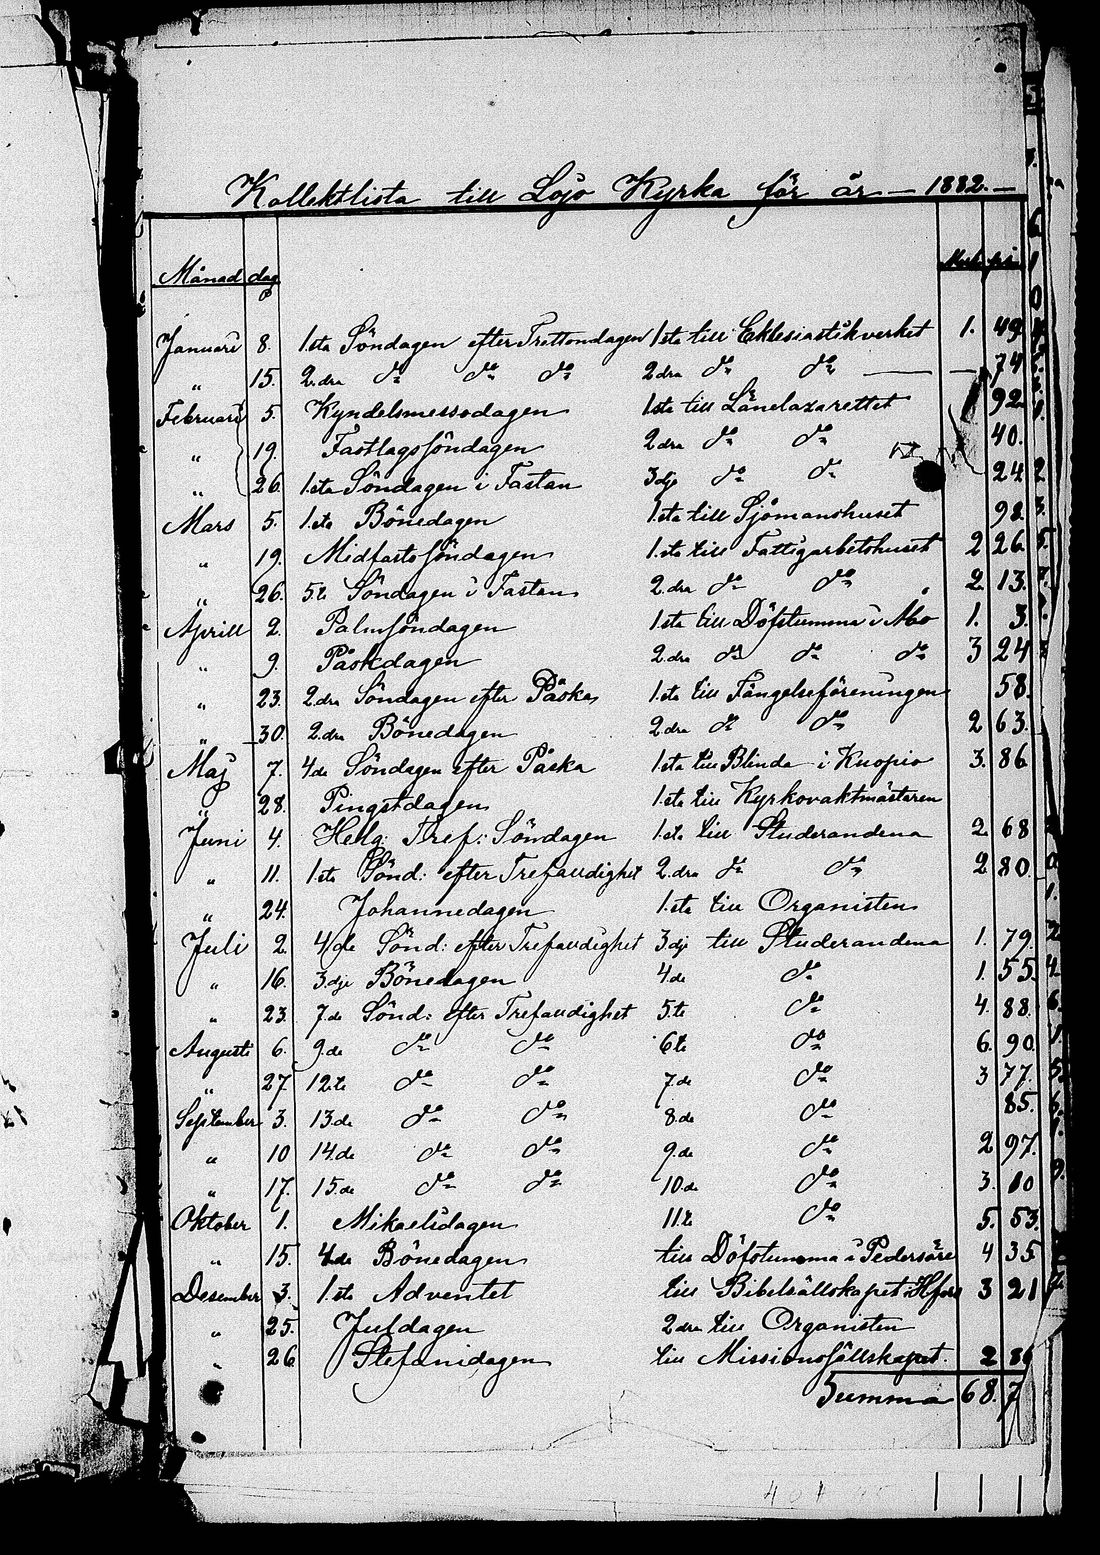 Kollektlista till Lojo Kyrka för år — 1882. —
Månad dag Mark pi
Januari 8. 1.sta Söndagen efter Trettondagen 1.sta till Eklesiastikverket 1. 49
" 15. 2.dra do do do 2.dra do do — 74
Februari 5. Kyndelsmessodagen 1.sta till Länelazarettet 92
" 19. Fastlagsföndagen 2.dra do do 40.
" 26. 1.sta Söndagen i Fastan 3.dje do do 24
Mars 5. 1.sta Bönedagen 1.sta till Sjömanshuset 92.
" 19. Midfastoföndagen 1.sta till Fattigarbetshuset 2 26
" 26. 5.te Söndagen i Fastan 2.dra do do 2 13.
Aprill 2. Palmföndagen 1.sta till Döfstumma i Åbo 1. 3.
" 9. Påskdagen 2.dra do do do 3 24
" 23. 2.dra Söndagen efter Påska 1.sta till Fängelseföreningen 58.
" 30. 2.dra Bönedagen 2.dra do do 2 63.
Maj 7. 4.de Söndagen efter Påska 1.sta till Blinda i Kuopio 3. 86
" 28. Pingstdagen 1.sta till Kyrkovaktmästaren
Juni 4. Helg: Tref: Söndagen 1.sta till Studerandena 2 68
" 11. 1.sta Sönd: efter Trefaudighet 2.dra do do 2 80
" 24. Johannedagen 1.sta till Organisten
Juli 2. 4.de Sönd: efter Trefaudighet 3.dje till Studerandena 1. 79.
" 16. 3.dje Bönedagen 4.de do 1. 55.
" 23. 7.de Sönd: efter Trefaudighet 5.te do 4. 88.
Augusti 6. 9.de do do 6.te do 6. 90.
" 27. 12.te do do 7.de do 3 77.
September 3. 13.de do do 8.de do 85.
" 10 14.de do do 9.de do 2 97.
" 17. 15.de do do 10.de do 3. 10
Oktober 1. Mikaelidagen 11.te do 5. 53.
" 15. 4.de Bönedagen till Döfstumma i Pedersöre 4 35
Desember 3. 1.sta Adventet till Bibelsällskapet i Hfors 3 21
" 25. Juldagen 2.dra till Organisten
" 26 Stefanidagen till Missionsfällskapet. 2 86
Summa 68. 7